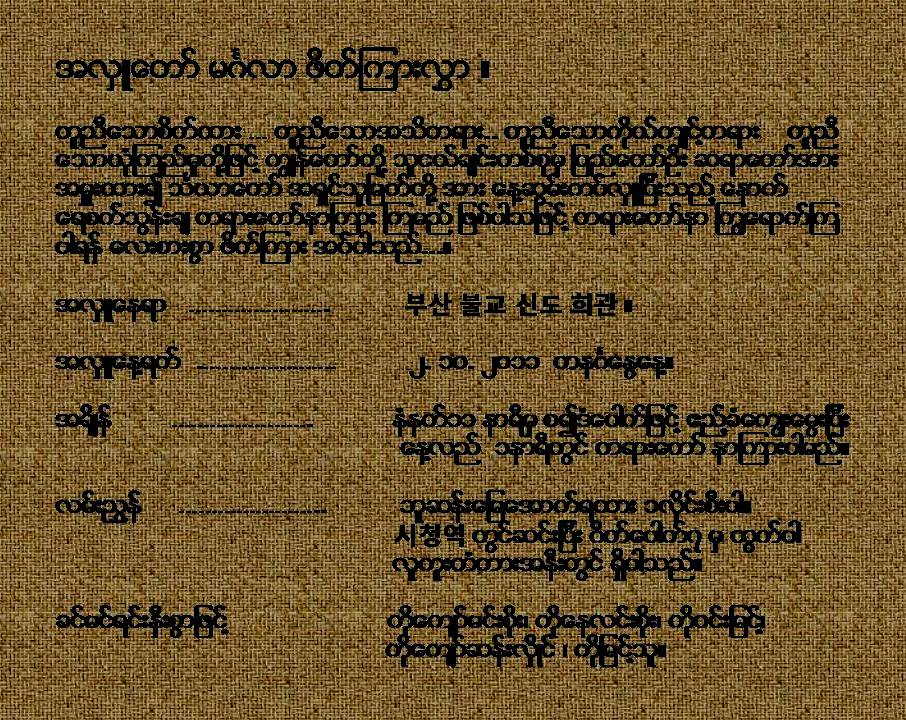 အလှူတော် မင်္ဂလာ ဖိတ်ကြားလွှာ ။
တူညီသောစိတ်ထား ... တူညီသောအသိတရား... တူညီသောကိုယ်ကျင့်တရား တူညီ
သောယုံကြည်မှုတို့ဖြင့် ကျွန်တော်တို့ သူငယ်ချင်းတစ်စုမှ ပြည်တော်ဦး ဆရာတော်အား
အမှူးထား၍ သံဃာတော် အရှင်သူမြတ်တို့ အား နေ့ဆွမ်းကပ်လှူပြီးသည့် နောက်
ရေစက်သွန်းချ တရားတော်နာကြား ကြမည် ဖြစ်ပါသဖြင့် တရားတော်နာ ကြွရောက်ကြ
ပါရန် လေးစားစွာ ဖိတ်ကြား အပ်ပါသည်...။
အလှူနေရာ ---------------------- 부산 불교 신도 회관 ။
အလှူနေ့ရက် ---------------------- ၂. ၁၀. ၂၀၁၁ တနင်္ဂနွေနေ့။
အချိန် ---------------------- နံနက်၁၁ နာရီမှ စ၍ဒံပေါက်ဖြင့် ဧည့်ခံကျွေးမွေးပြီး
နေ့လည် ၁နာရီတွင် တရားတော် နာကြားပါမည်။
လမ်းညွှန် ----------------------- ဘူဆန်းမြေအောက်ရထား ၁လိုင်းစီးပါ။
시청역 တွင်ဆင်းပြီး ဂိတ်ပေါက်၇ မှ ထွက်ပါ
လူကူးတံတားအနီးတွင် ရှိပါသည်။
ခင်မင်ရင်းနှီးစွာဖြင့် ကိုကျော်မင်းစိုး၊ ကိုနေလင်းစိုး၊ ကိုဝင်းမြင့်၊
ကိုကျော်ဆန်းလှိုင် ၊ ကိုမြင့်သူ။